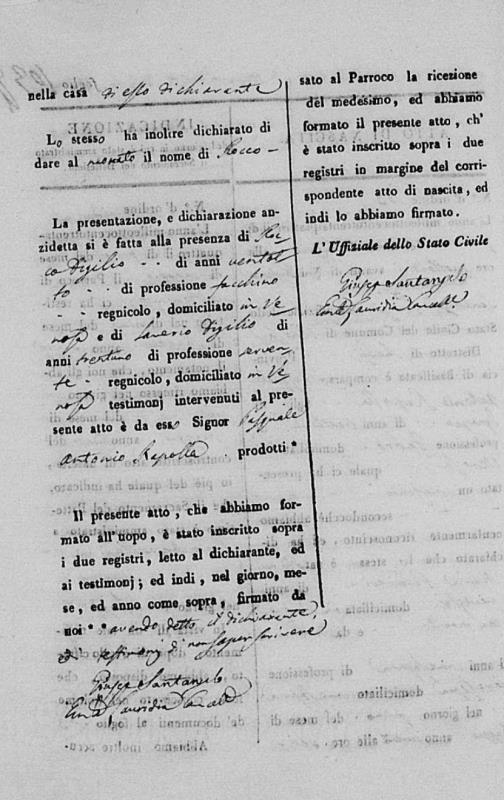 nella casa di esso dichiarante
Lo stesso ha inoltre dichiarato di
dare al neonato il nome di Rocco
La presentazione, e dichiarazione an-
zidetta si è fatta alla presenza di Roc-
co Digilio di anni ventot
to di professione facchino
regnicolo, domiciliato in Ve
nosa e di Saverio Digilio di
anni trentuno di professione serven-
te regnicolo, domiciliato in Ve
nosa testimonj intervenuti al pre-
sente atto è da esso Signor Pasquale
Antonio Rapolla prodotti *
Il presente atto, che abbiamo for-
mato all'uopo, è stato inscritto sopra
i due registri, letto al dichiarante, ed
ai testimonj; ed indi, nel giorno, me-
se, ed anno come sopra, firmato da
noi * avendo detto il dichiarante,
ed i testimonj di non saper scrivere
Giusep Santangelo
sato al Parroco la ricezione
del medesimo, ed abbiamo
formato il presente atto, ch'
è stato inscritto sopra i due
registri in margine del corri-
spondente atto di nascita, ed
indi lo abbiamo firmato.
L'Uffiziale dello Stato Civile
Giusep Santangelo